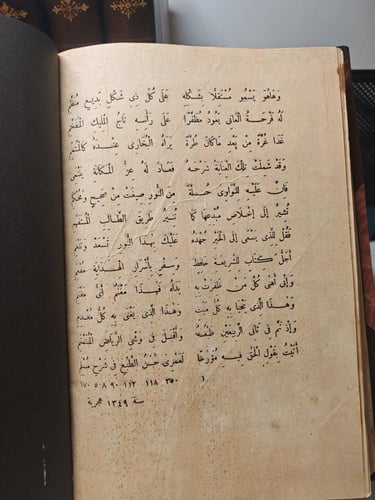 وَهَاهُوَ يَسْمُو مُسْتَقِلًّا بِشَكْلِهِ عَلَى كُلِّ ذِي شَكْلٍ بَدِيعٍ مُنَظَّمِ
لَهُ فَرْحَةُ الْعَانِي يَعُودُ مُظَفَّرًا عَلَى رَأْسِهِ تَاجُ الْمَلِيكِ الْمُفَخَّمِ
غَدَا غُرَّةً مِنْ بَعْدِ مَاكَانَ طُرَّةً يَرَاهُ الْبُخَارِي عِنْدَهُ كَالْمُتَمِّمِ
وَقَدْ شَمِلَتْ تِلْكَ الْعِنَايَةُ شَرْحَهُ فَعَادَ لَهُ عِزُّ الْمَكَانَةِ يَنْتَمِي
فَإِنَّ عَلَيْهِ لِلنَّوَاوِيِّ حُلَّةً مِنَ النُّورِ صِيغَتْ مِنْ صَحِيحٍ وَمُحْكَمِ
تُشِيرُ إِلَى إِخْلَاصِ مُبْدِعِهَا كَمَا تُنِيرُ طَرِيقَ الطَّالِبِ الْمُتَفَهِّمِ
فَقُلْ لِلَّذِي يَسْعَى إِلَى الْخَيْرِ جُهْدَهُ عَلَيْكَ بِهَذَا النُّورِ تَسْعَدْ وَتَغْنَمِ
أَجَلُّ كِتَابٍ لِلشَّرِيعَةِ حَافِظٌ وَسِفْرٌ بِأَسْرَارِ الْهِدَايَةِ مُفْعَمِ
وَإِنِّي أُهَنِّي كُلَّ مَنْ ظَفِرَتْ بِهِ يَدَاهُ فَهَذَا مَغْنَمٌ أَيُّ مَغْنَمِ
وَهَذَا الَّذِي يَحْيَا بِهِ كُلُّ مَيِّتٍ وَهَذَا الَّذِي يَغْنَى بِهِ كُلُّ مُعْدِمِ
وَإِذْ تَمَّ فِي ثَانِي الرَّبِيعَيْنِ طَبْعُهُ وَأَقْبَلَ فِي وَشْيِ الرِّيَاضِ الْمُنَمْنَمِ
أَتَيْتُ بِقَوْلِ الْحَقِّ فِيهِ مُؤَرِّخًا لَعَمْرِي حُسْنُ الطَّبْعِ فِي شَرْحِ مُسْلِمِ
١ ٣٥٠ ١١٨ ١١٣ ٩٠ ٥٠٨ ١٧٠
سنة ١٣٤٩ هجرية